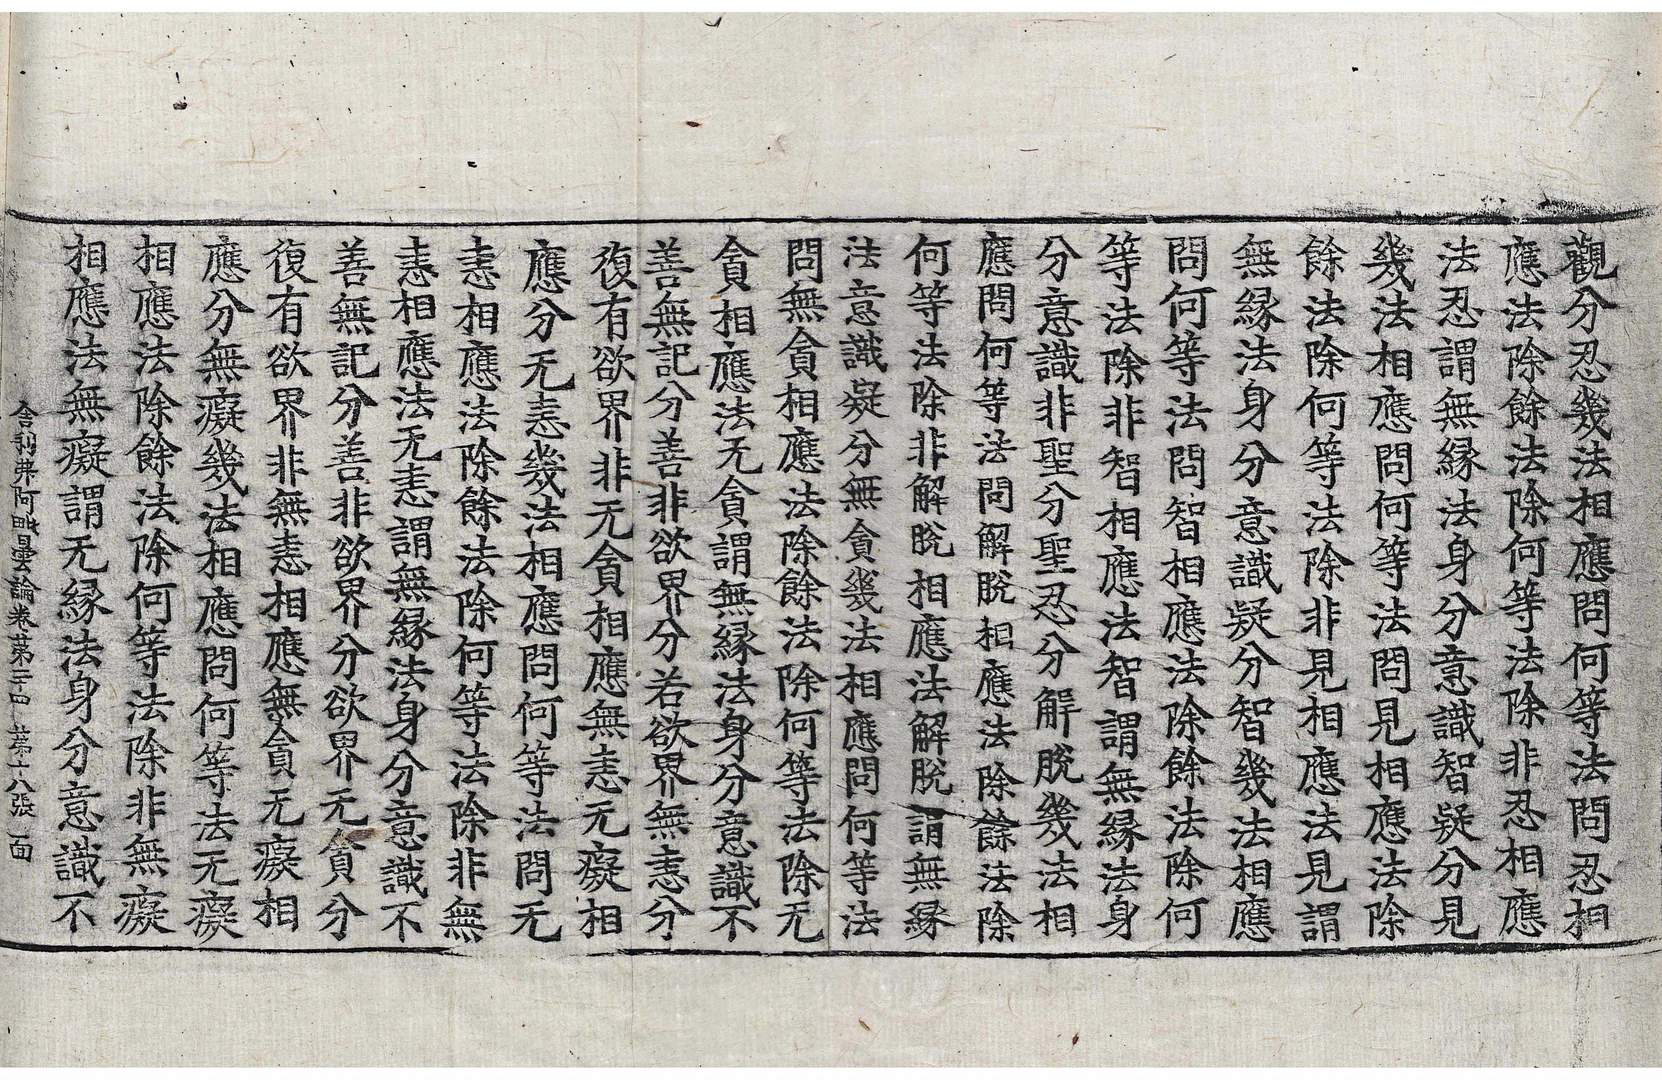 觀分忍幾法相應問何等法問忍相
應法除餘法除何等法除非忍相應
法忍謂無縁法身分意識智疑分見
幾法相應問何等法問見相應法除
餘法除何等法除非見相應法見謂
無縁法身分意識疑分智幾法相應
問何等法問智相應法除餘法除何
等法除非智相應法智謂無縁法身
分意識非聖分聖忍分解脫幾法相
應問何等法問解脫相應法除餘法除
何等法除非解脫相應法解脫謂無縁
法意識疑分無貪幾法相應問何等法
問無貪相應法除餘法除何等法除无
貪相應法无貪謂無縁法身分意識不
善無記分善非欲界分若欲界無恚分
復有欲界非无貪相應無恚无癡相
應分无恚幾法相應問何等法問无
恚相應法除餘法除何等法除非無
恚相應法无恚謂無縁法身分意識不
善無記分善非欲界分欲界无貪分
復有欲界非無恚相應無貪无癡相
應分無癡幾法相應問何等法无癡
相應法除餘法除何等法除非無癡
相應法無癡謂无縁法身分意識不
舍利弗阿毗曇論卷苐二十四 苐十八張 一面